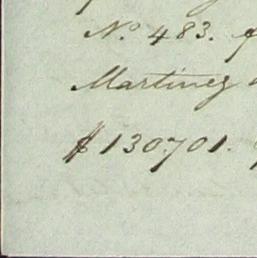 No. 483.
Martinez
$130701.